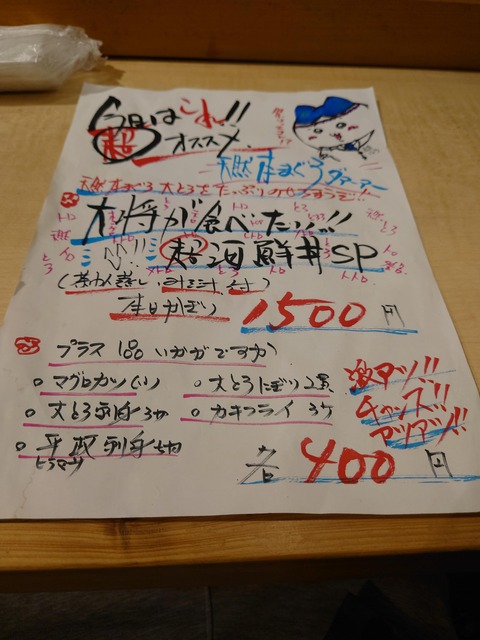 今日はこれ!!
超オススメ
天然本まぐろ
天然本まぐろ大とろをたっぷりのせちまうぞ!!
大将が食べたい!!
超海鮮丼SP
(茶わん蒸し 汁 付)
本日かぎり 1500円
プラス1品いかがですか
○ マグロカツ(1) ○ 大とろにぎり2貫
○ 大とろ刺身3切 ○ カキフライ3ケ
○ 平政刺身5切
ヒラマサ
激アツ!!
チャンス!!
アツアツ!!
各400円